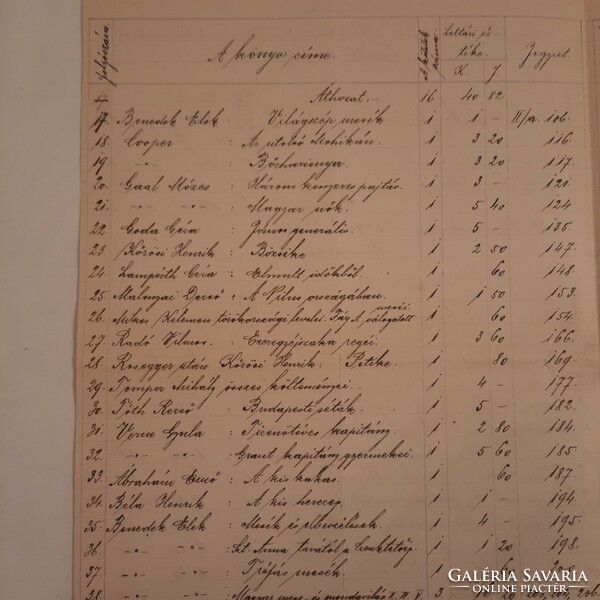 folyószám. A könyv címe. A kötetek száma. Leltári értéke. Jegyzet.
K. f
Áthozat: — 16 40 82
17. Benedek Elek : Világszép mesék 1 1 — II/a. 106.
18. Cooper : Az utolsó Mohikán. 1 3 20 116.
19. -"- : Bőrharisnya. 1 3 20 117.
20. Gaal Mózes : Három kenyeres pajtás. 1 3 — 121
21. -"- -"- : Magyar nők. 1 5 40 124
22. Goda Géza : János generális. 1 5 — 135.
23. Kőrösi Henrik : Bözsike 1 2 50 147.
24. Lampérth Géza : Elmult időkből. 1 60 148.
25. Malonyai Dezső : A Nilus országában. 1 1 50 153.
26. Mikes Kelemen törökországi levelei. Fáy A. válogatott meséi 1 60 154.
27. Radó Vilmos. : Ezeregyéjszaka regéi 1 3 60 166.
28. Rosegger után Kőrösi Henrik : Petike. 1 80 169.
29. Tompa Mihály összes költeményei. 1 4 — 177.
30. Tóth Rezső : Budapesti séták. 1 5 — 182.
31. Verne Gyula : Tizenötéves kapitány. 1 2 80 184.
32. -"- -"- : Grant kapitány gyermekei. 1 5 60 185.
33. Ábrahám Ernő : A kis kakas. 1 60 187.
34. Béla Henrik : A kis herceg. 1 1 — 194.
35. Benedek Elek : Mesék és elbeszélések. 1 4 — 195.
36. -"- -"- : Szt. Anna tavától a Cenktetőig. 1 1 20 198.
37. -"- -"- : Tréfás mesék. 1 60
38. Magyar mese és mondavilág 3.
GALÉRIA SAVARIA
ONLINE PIACTÉR